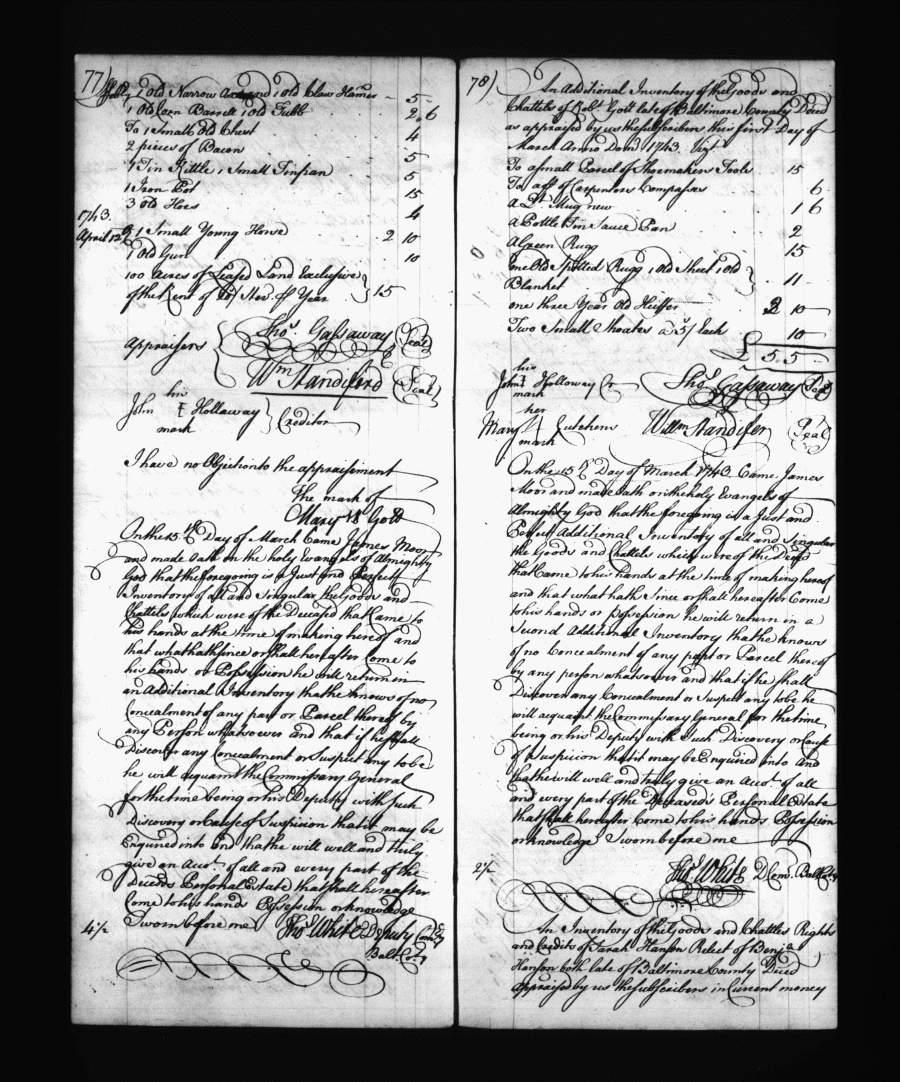 77)
1 Old Narrow Axe and 1 Old Claw Hamer - 5 -
1 Old Corn Barrell 1 Old Tubb 2, 6
To 1 Small Old Chest 4
2 pieces of Bacon 5
1 Tin Kittle 1 Small Tinpan 5
1 Iron Pot 15
3 Old Hoes 4
1743.
April 12 1 Small Young Horse - 2 10
1 Old Gun 10
100 Acres of Leased Land Exclusive
of the Rent of Ster. Year } 15
Appraisers { Thos. Gassaway (Seal)
Wm Standiford (Seal)
his
John Hollaway } Creditor
mark
I have no Objection to the appraisement
The mark of
Mary Gott
On the 15th Day of March Came James Moor
and made Oath on the holy Evangels of Almighty
God that the foregoing is a Just and Perfect
Inventory of all and Singular the Goods and
Chattels which were of the Deceased that Came to
his hands at the time of making hereof and
that what hath since or shall hereafter Come to
his hands or Possession he will return in
an Additional Inventory that he knows of no
Concealment of any part or Parcel thereof by
any Person whatsoever and that if he shall
Discover any Concealment or Suspect any to be
he will acquaint the Commissary General
for the time being or his Deputy with such
Discovery or Cause of Suspicion that it may be
Enquired into and that he will well and truly
give an Acct. of all and every part of the
Deceds Personal Estate that shall hereafter
Come to his hands Possession or knowledge
4½ Sworn before me Thos. White Deputy Comry
Balt. Coty
78)
An Additional Inventory of the Goods and
Chattels of Robt. Gott late of Baltimore County Deced
as appraised by us the subscribers this first Day of
March Anno Dom 1743. Vizt
To a small Parcel of Shoemakers Tools 15
To a pr of Carpenters Compases 6
a Mug new 1 6
a Pottle Tin Sauce Pan 2
A Green Rugg 15
one Old Spotted Rugg 1 Old Sheet 1 Old
Blanket } 11
one three Year Old Heiffer 2 10
Two Small Shoates a 5/ Each 10
£ 5 5
his
John Holloway Cr Thos Gassaway (Seal)
mark
her
Mary Hutchens Willm Standifer (Seal)
mark
On the 15th Day of March 1743 Came James
Moor and made Oath on the holy Evangels of
Almighty God that the foregoing is a Just and
Perfect Additional Inventory of all and Singular
the Goods and Chattels which were of the Deced
that Came to his hands at the time of making hereof
and that what hath Since or shall hereafter Come
to his hands or Possession he will return in a
Second Additional Inventory that he knows
of no Concealment of any part or Parcel thereof
by any person whatsoever and that if he shall
Discover any Concealment or Suspect any to be he
will acquaint the Commissary General for the time
being or his Deputy with Such Discovery or Cause
of Suspicion that it may be Enquired into And
that he will well and truly give an Acct. of all
and every part of the Deceased's Personal Estate
that shall hereafter Come to his hands Possession
or knowledge Sworn before me
2½ Thos. White D Com. Balt Coty
An Inventory of the Goods and Chattles Rights
and Credits of Sarah Hanson Relect of Benja
Hanson both late of Baltimore County Deced
appraised by us the subscribers in Current money